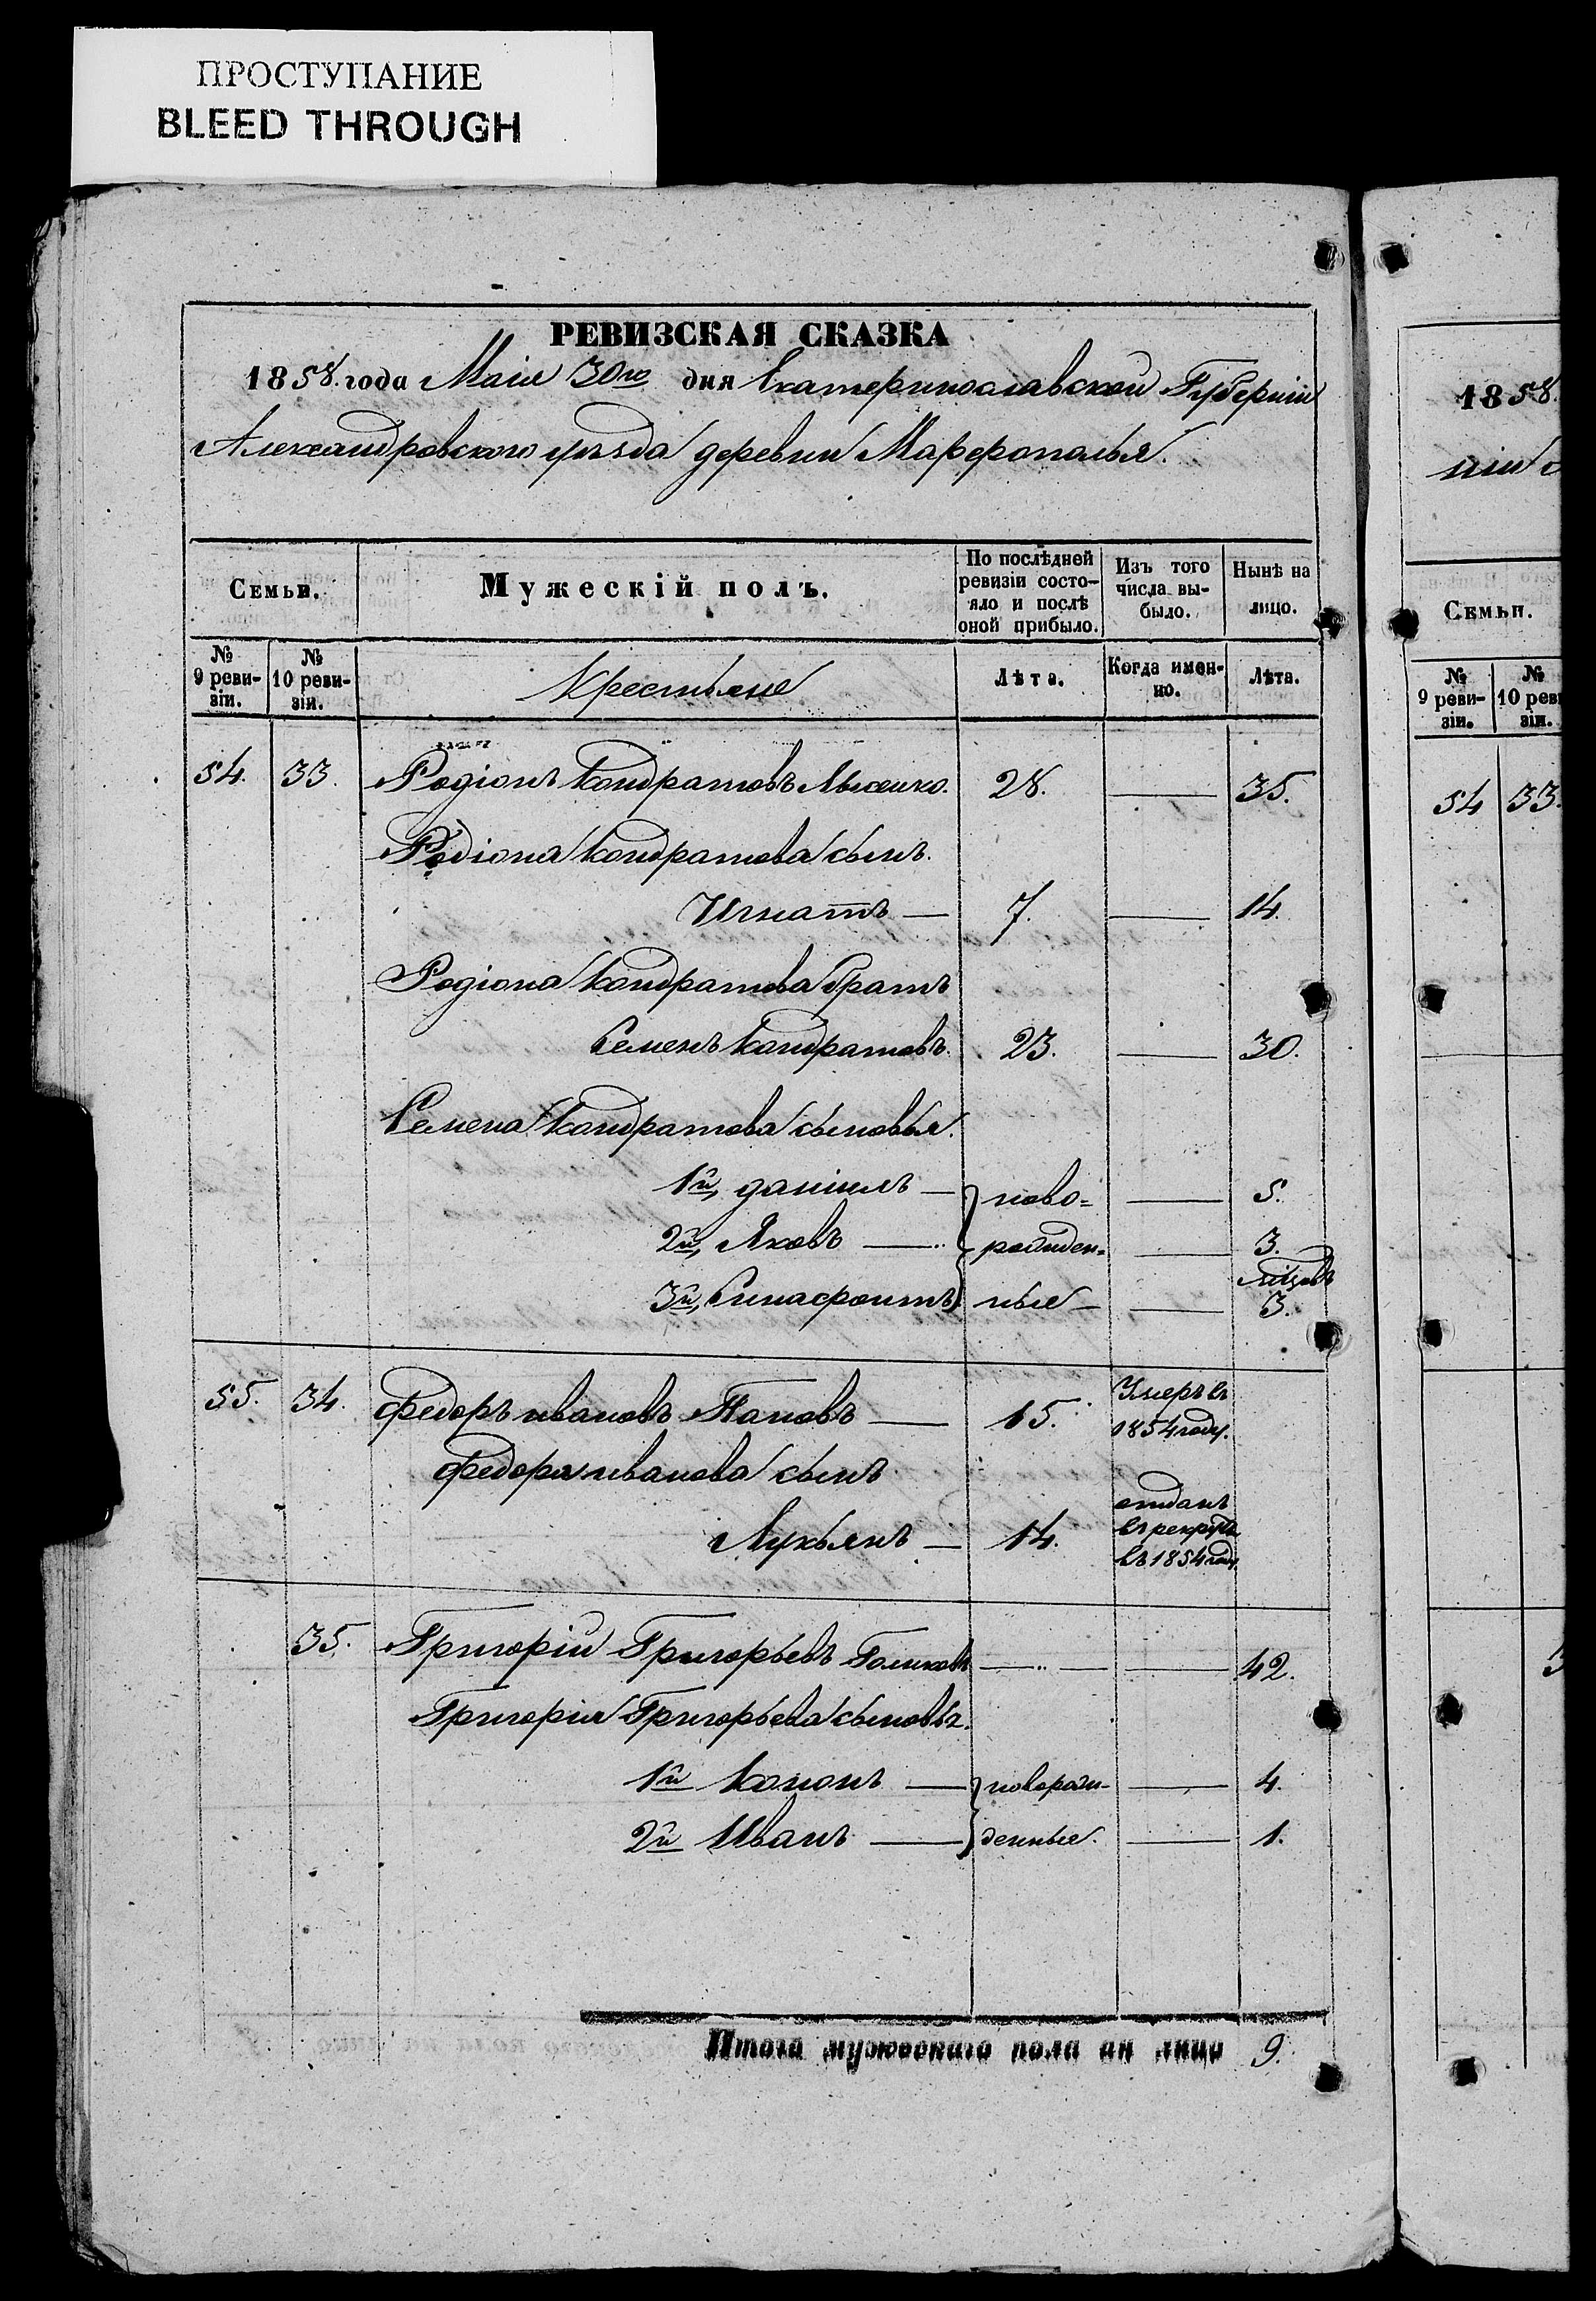 ПРОСТУПАНИЕ
BLEED THROUGH
РЕВИЗСКАЯ СКАЗКА
1858. года Маія 30го дня Екатеринославской Губерніи
Александровского уѣзда деревни Марферополья.
Семьи. Мужескій полъ. По послѣдней ревизіи состо-яло и послѣ оной прибыло. Изъ того числа вы-было. Нынѣ на лицо.
№ 9 реви-зіи. № 10 реви-зіи. Крестьяне Лѣта. Когда имен-но. Лѣта.
54. 33. Родіонъ Кондратовъ Лысенко. 28. — 35.
Родіона Кондратова сынъ.
Игнатъ — 7. — 14.
Родіона Кондратова братъ
Семенъ Кондратовъ. 23. — 30.
Семена Кондратова сыновья.
1й, Даніилъ — ново= — 5.
2й, Яковъ — рожден= — 3.
мѣсяцовъ
3й, ные — — 3.
55. 34. Федоръ Ивановъ Пановъ — 15. Умеръ въ
1854 году.
Федора Иванова сынъ
Лукьянъ — 14. отданъ
въ рекруты
въ 1854 году.
35. Григорій Григорьевъ Голиковъ — — 42.
Григорія Григорьева сыновья.
1й Кононъ — новорож- — 4.
2й Иванъ — денные. — 1.
Итого мужескаго пола на лицо 9.
1858.
ніи
Семьи.
№ 9 реви-зіи. № 10 реви зіи.
54 33.